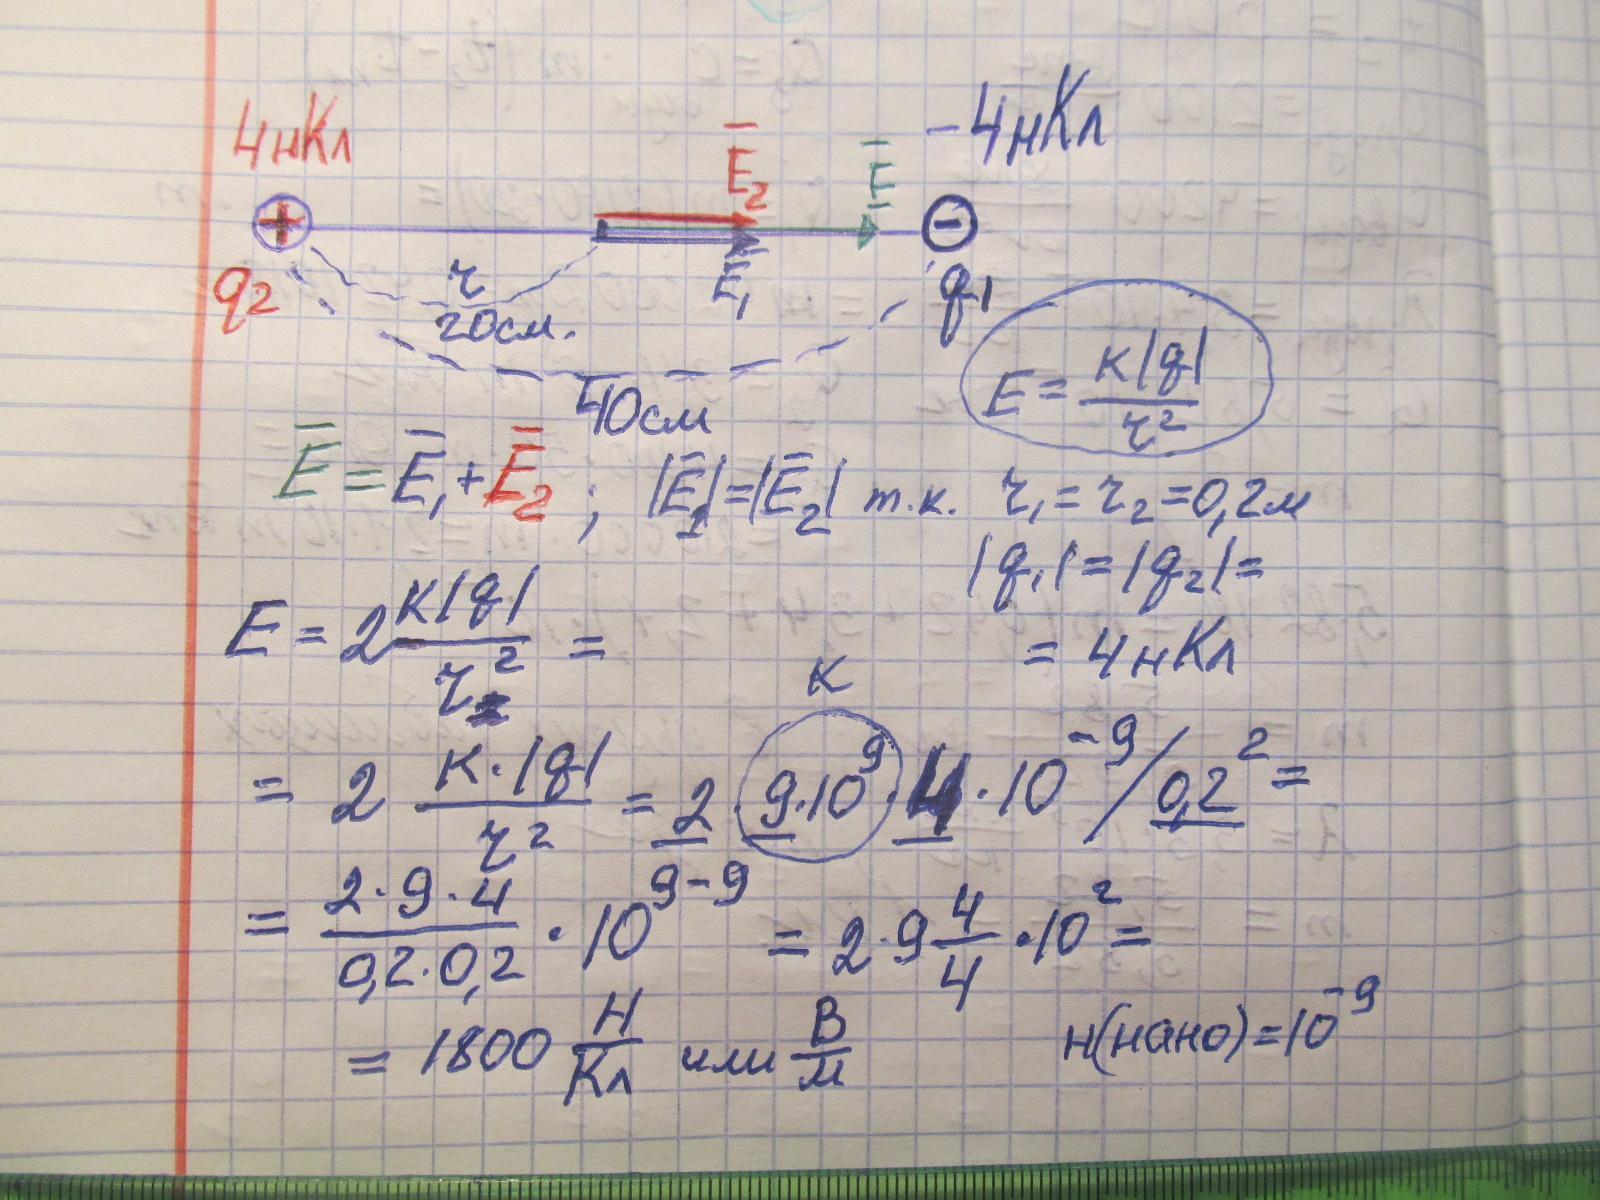 4нКл E̅₂ E̅ -4нКл
+ -
q₂ r E̅₁ q₁
20см.
40см E = к|q|/r²
E̅ = E̅₁ + E̅₂ ; |E̅₁| = |E̅₂| т.к. r₁ = r₂ = 0,2м
|q₁| = |q₂| =
E = 2 к|q|/r² = = 4нКл
к
= 2 к·|q|/r² = 2 · 9·10⁹ · 4 · 10⁻⁹ / 0,2² =
= 2·9·4/0,2·0,2 · 10⁹⁻⁹ = 2·9 4/4 · 10² =
= 1800 Н/Кл или В/м н(нано) = 10⁻⁹